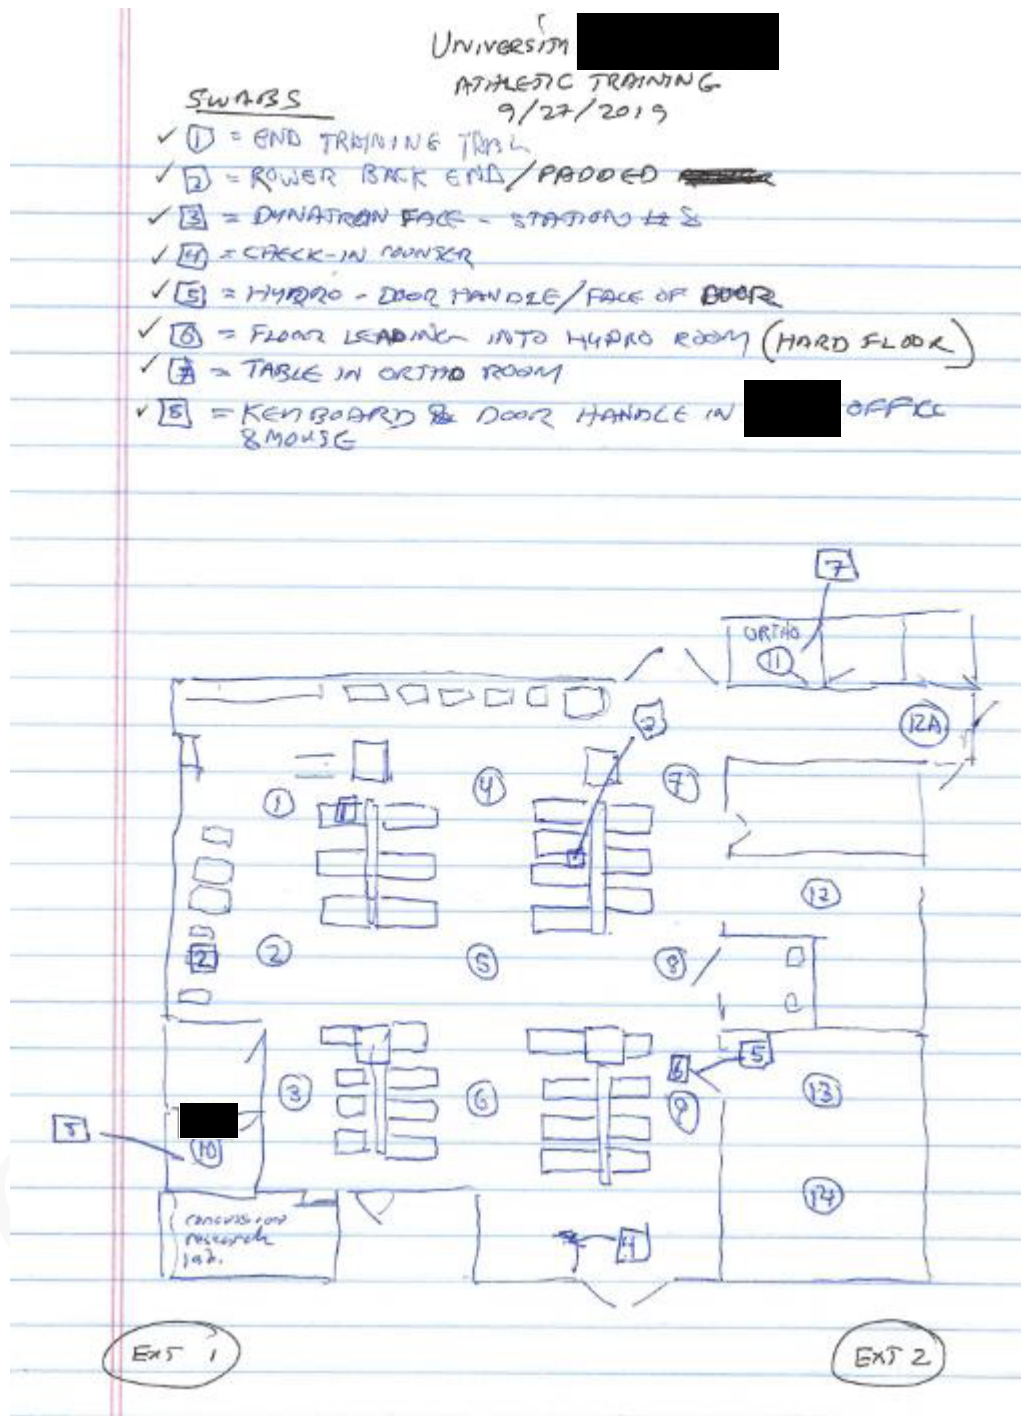 UNIVERSITY
ATHLETIC TRAINING
9/27/2019
SWABS
✓ 1 = END TRAINING TABLE
✓ 2 = ROWER BACK END/PADDED
✓ 3 = DYNATRON FACE - STATION # 8
✓ 4 = CHECK-IN COUNTER
✓ 5 = HYDRO - DOOR HANDLE/FACE OF DOOR
✓ 6 = FLOOR LEADING INTO HYDRO ROOM (HARD FLOOR)
✓ 7 = TABLE IN ORTHO ROOM
✓ 8 = KEYBOARD & DOOR HANDLE IN OFFICE
& MOUSE
7
ORTHO
11
12A
3
1
4
7
1
12
2
2
5
8
6
5
3
6
9
13
8
10
14
concussion
research
lab.
4
EXT 1
EXT 2